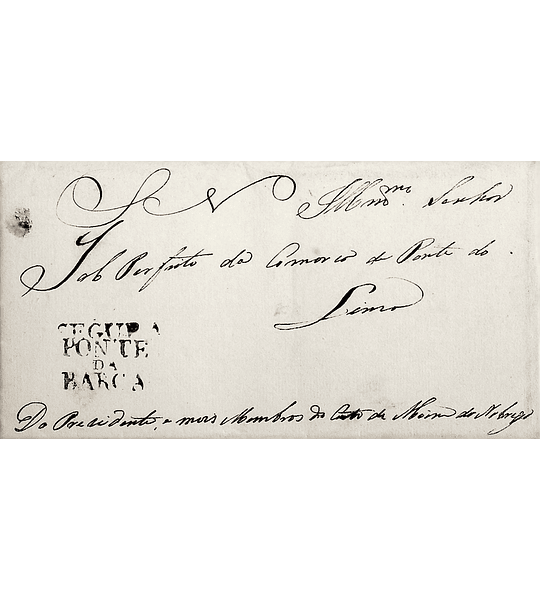 S N Illmo. Senhor
Sub Perfeito da Comarca de Ponte do
Lima
SEGURA
PONTE
DA
BARCA
Do Presidente, e mais Membros da de Moira do Nobrega